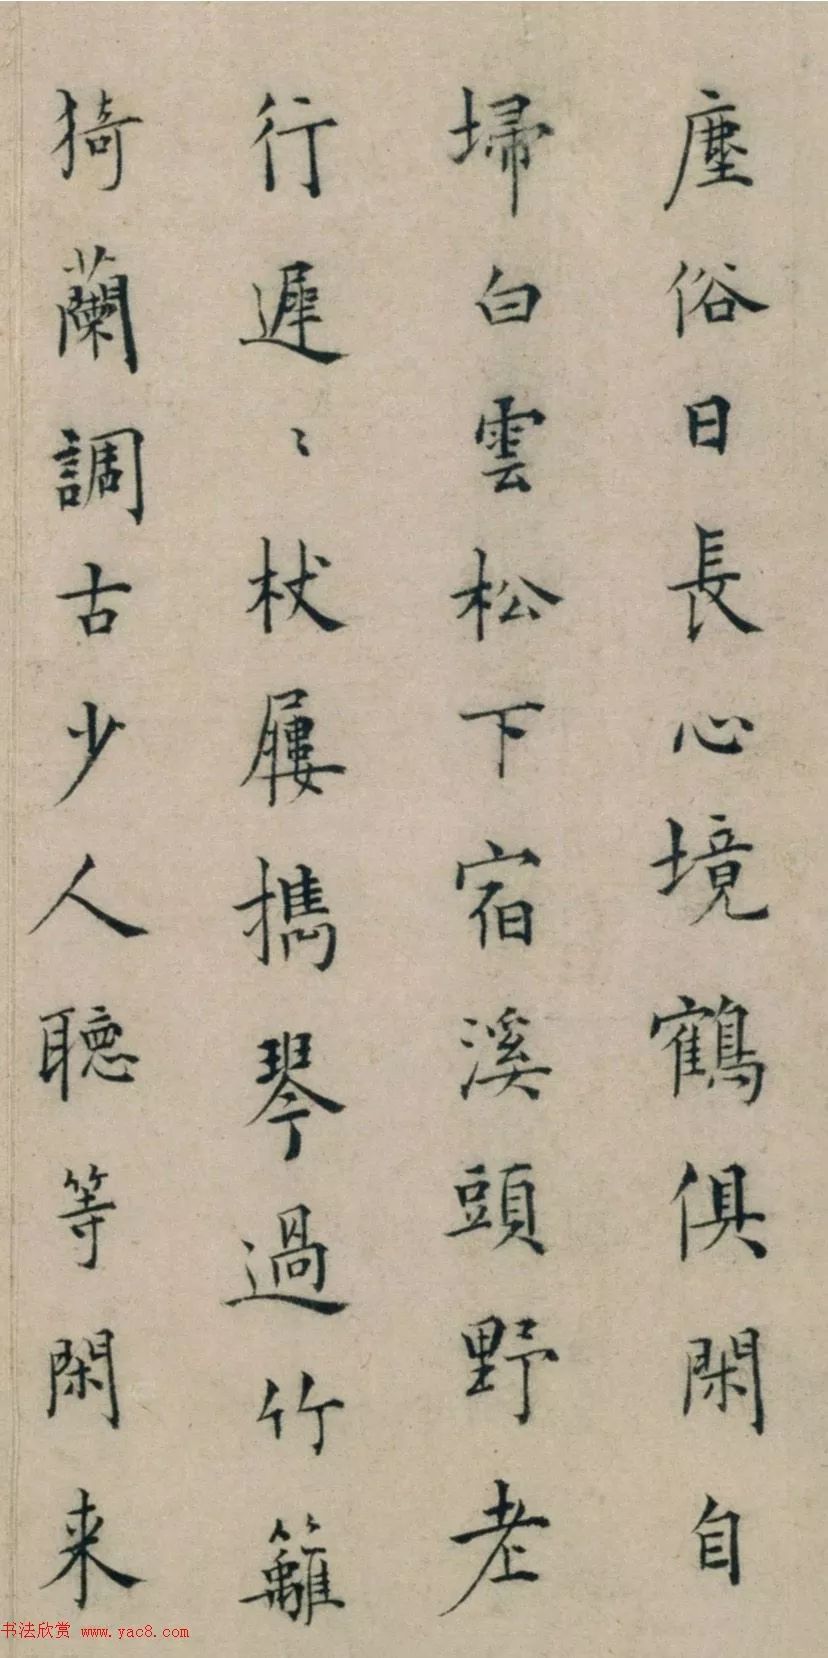 塵俗日長心境鶴俱閑自
埽白雲松下宿溪頭野老
行遲〻杖屨携琴過竹籬
猗蘭調古少人聽等閑来
书法欣赏 www.yac8.com